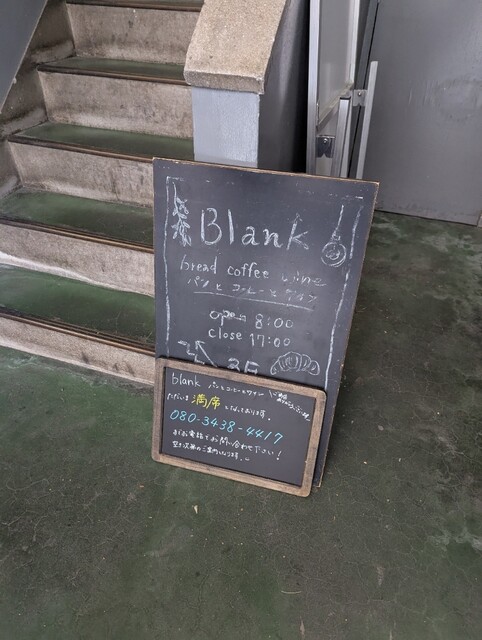 Blank
bread coffee wine
パンとコーヒーとワイン
open 8:00
close 17:00
2F
blank パンとコーヒーとワイン
ただいま 満席 となっております。
080-3438-4417
までお電話でお問い合わせ下さい!
空き次第のご案内となります。